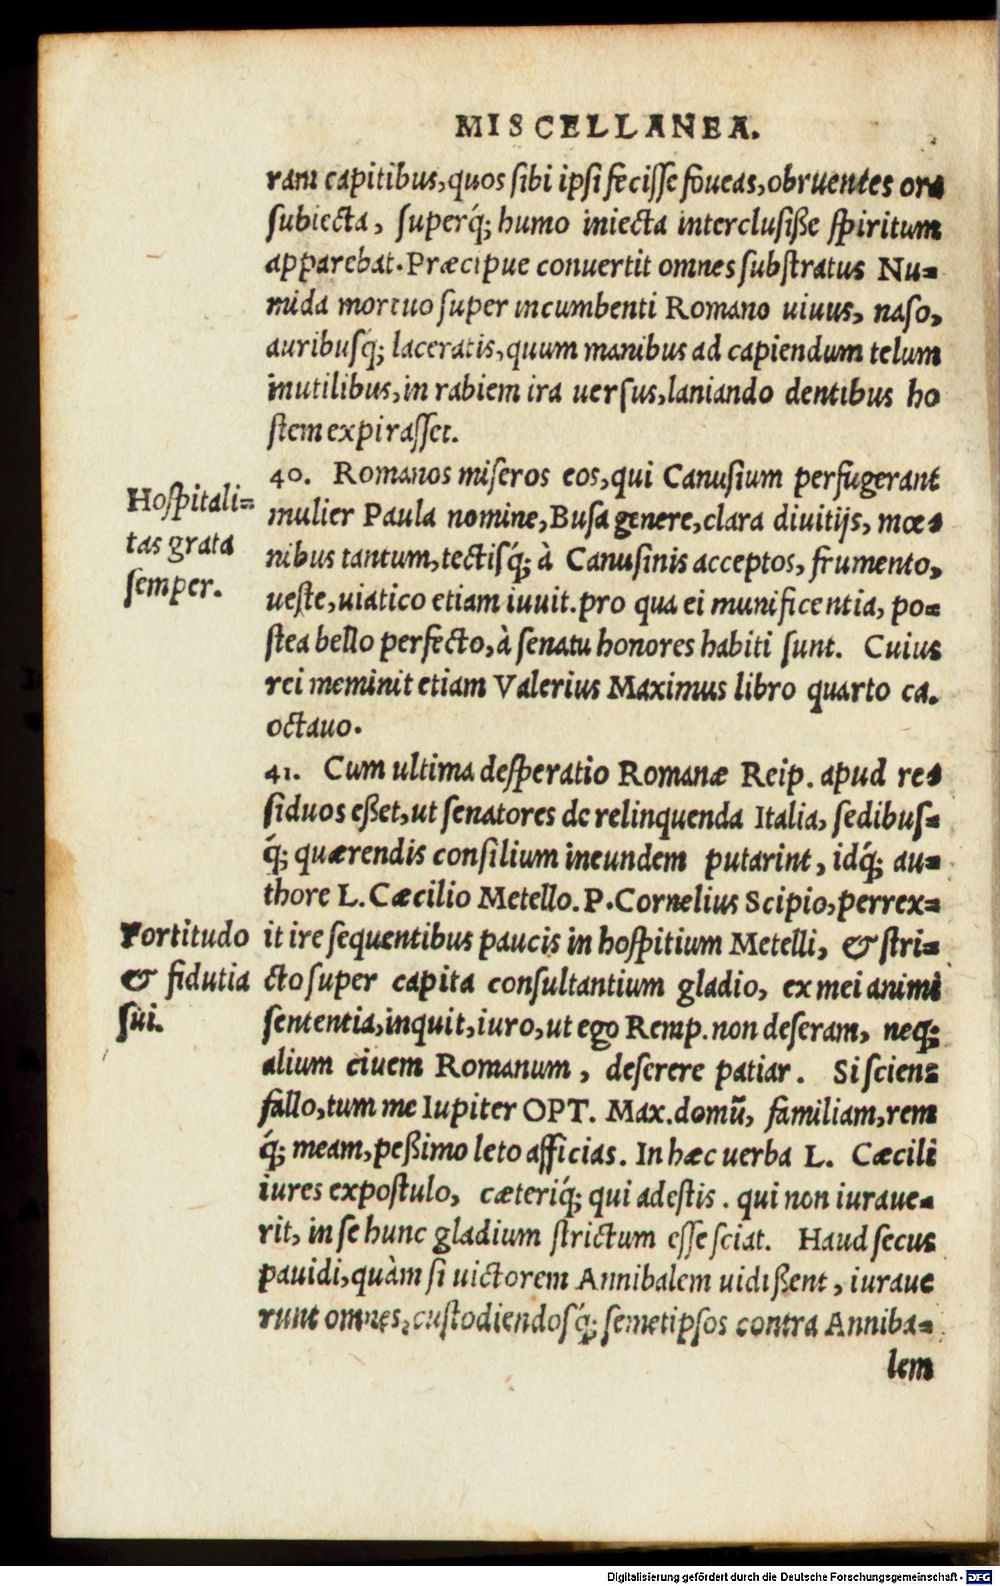 MISCELLANEA.
ram capitibus, quos sibi ipsi fecisse foueas, obruentes ora
subiecta, superq́; humo iniecta interclusiße spiritum
apparebat. Præcipue conuertit omnes substratus Nu=
mida mortuo super incumbenti Romano uiuus, naso,
auribusq́; laceratis, quum manibus ad capiendum telum
inutilibus, in rabiem ira uersus, laniando dentibus ho
stem expirasset.
40. Romanos miseros eos, qui Canusium perfugerant
Hospitali=
mulier Paula nomine, Busa genere, clara diuitijs, mœ=
tas grata
nibus tantum, tectisq́; à Canusinis acceptos, frumento,
semper.
ueste, uiatico etiam iuuit. pro qua ei munificentia, po=
stea bello perfecto, à senatu honores habiti sunt. Cuius
rei meminit etiam Valerius Maximus libro quarto ca.
octauo.
41. Cum ultima desperatio Romanæ Reip. apud re=
siduos eßet, ut senatores de relinquenda Italia, sedibus=
q́; quærendis consilium ineundem putarint, idq́; au=
thore L. Cæcilio Metello. P. Cornelius Scipio, perrex=
Fortitudo
it ire sequentibus paucis in hospitium Metelli, & stri=
& fidutia
cto super capita consultantium gladio, ex mei animi
sui.
sententia, inquit, iuro, ut ego Remp. non deseram, neq;
alium ciuem Romanum, deserere patiar. Si sciens
fallo, tum me Iupiter OPT. Max. domū, familiam, rem
q́; meam, peßimo leto afficias. In hæc uerba L. Cæcili
iures expostulo, cæteriq́; qui adestis. qui non iuraue=
rit, in se hunc gladium strictum esse sciat. Haud secus
pauidi, quàm si uictorem Annibalem uidißent, iuraue
runt omnes, custodiendosq́; semetipsos contra Anniba=
lem
Digitalisierung gefördert durch die Deutsche Forschungsgemeinschaft - DFG